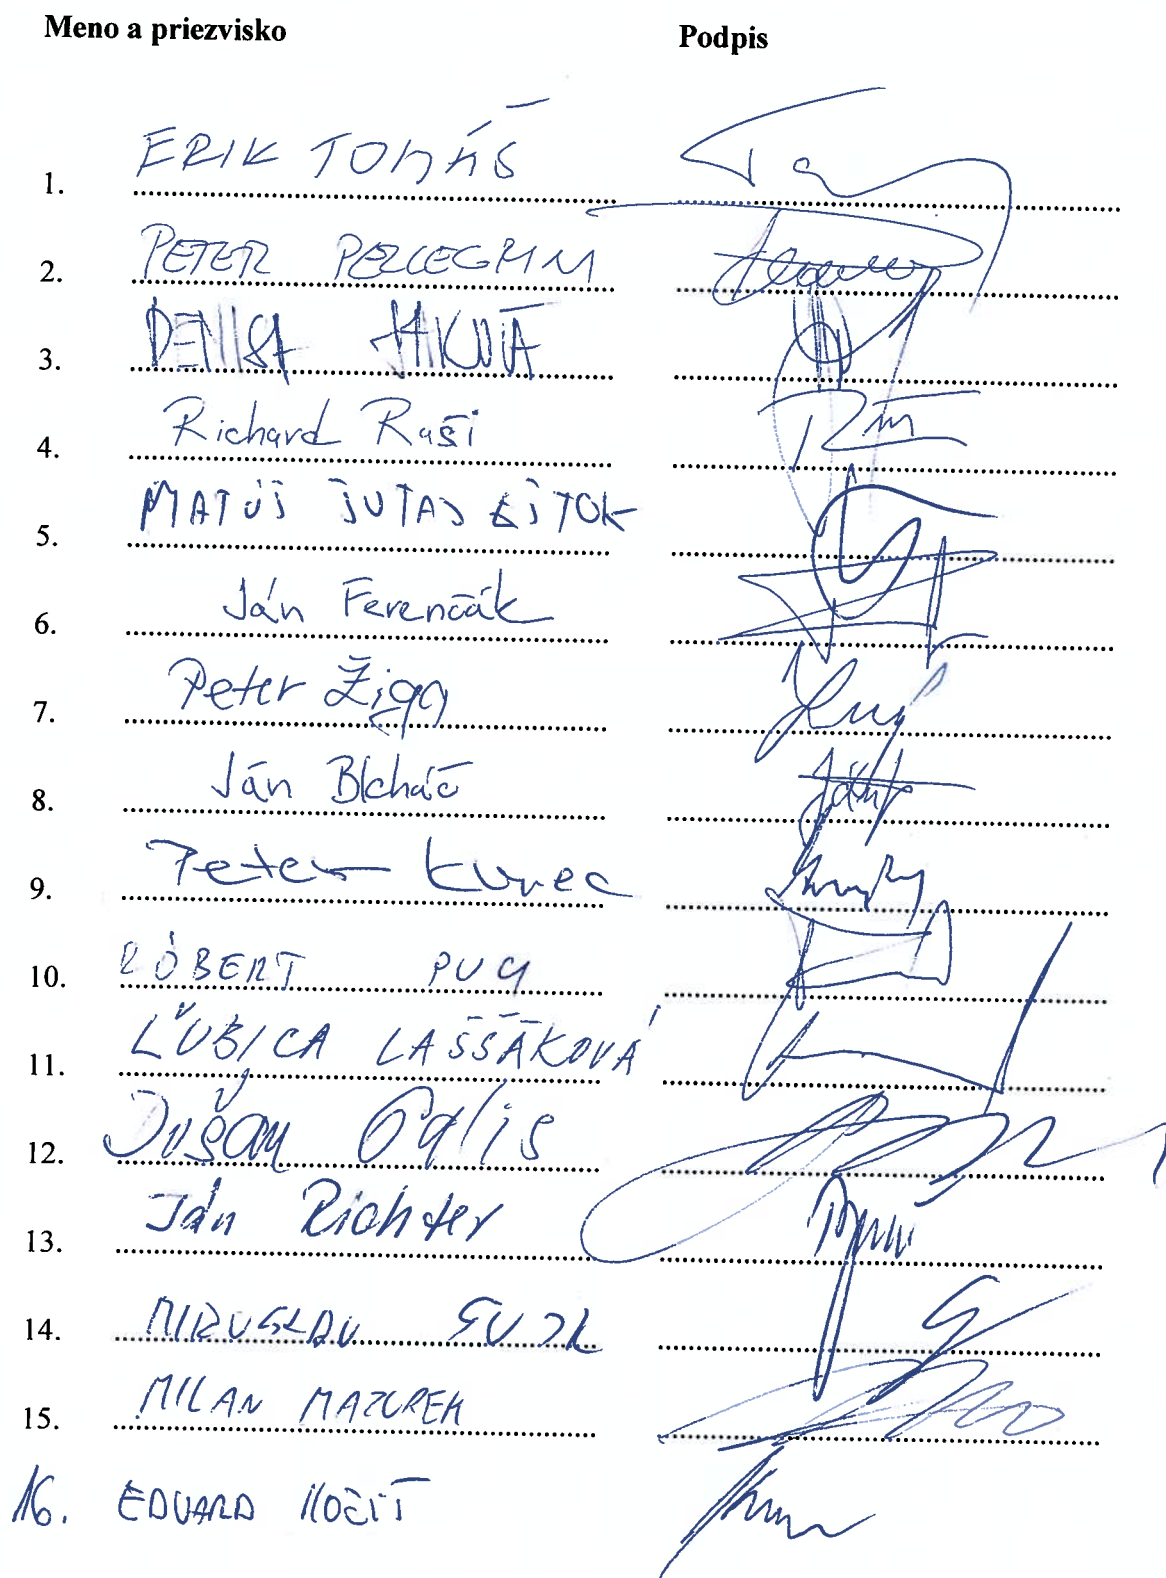 Meno a priezvisko Podpis
1. ERIK TOMÁŠ
2. PETER PELLEGRINI
3. DENISA SAKOVÁ
4. Richard Raši
5. MATÚŠ ŠUTAJ EŠTOK
6. Ján Ferenčák
7. Peter Žiga
8. Ján Blcháč
9. Peter Kmec
10. RÓBERT PUCI
11. ĽUBICA LAŠŠÁKOVÁ
12. Dušan Galis
13. Ján Richter
14. MIROSLAV ŠUJA
15. MILAN MAZUREK
16. EDUARD KOČIŠ